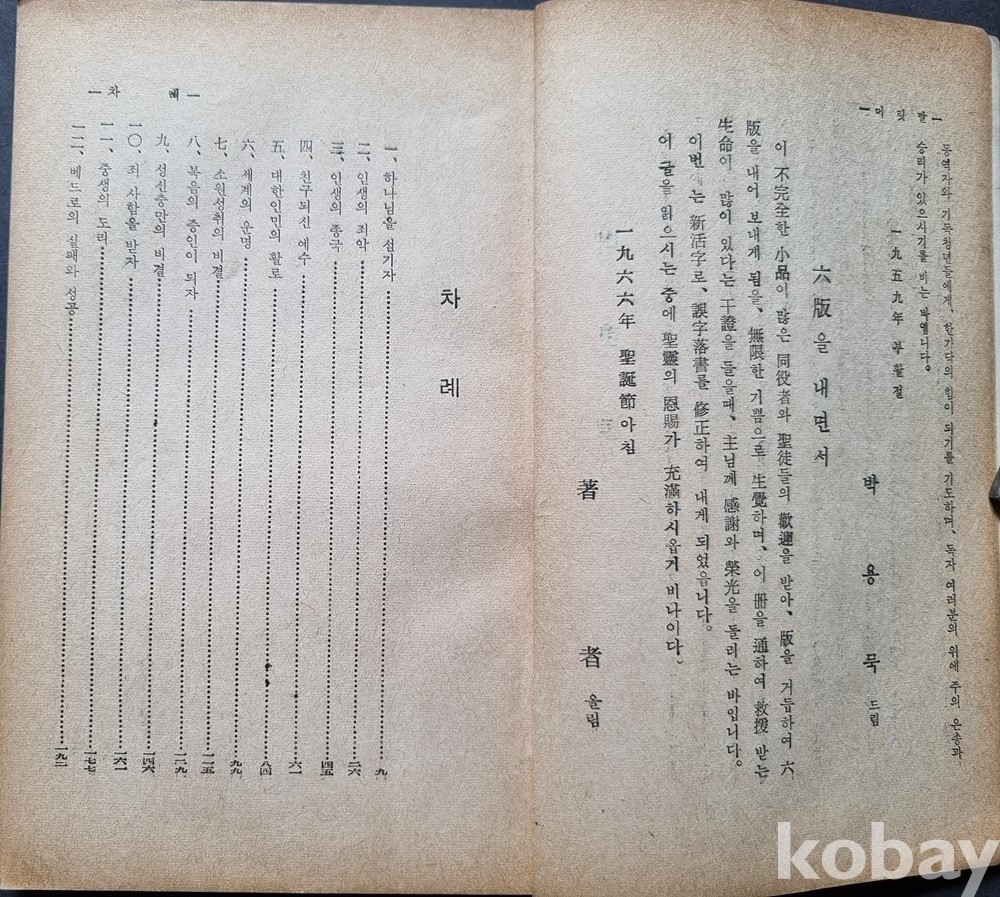 ー머 릿 말ー
동역자와 기독청년들에게, 한가닥의 힘이 되기를 기도하며, 독자 여러분의 위에 주의 은총과
승리가 있으시기를 비는 바입니다。
一九五九年 부활절
박 용 묵 드림
六版을 내면서
이 不完全한 小品이 많은 同役者와 聖徒들의 歡迎을 받아、版을 거듭하여 六
版을 내어 보내게 됨을、無限한 기쁨으로 生覺하며、이 冊을 通하여 救援 받는
生命이 많이 있다는 干證을 들을때、主님께 感謝와 榮光을 돌리는 바입니다。
이번에는 新活字로、誤字落書를 修正하여 내게 되었읍니다。
이 글을 읽으시는 중에 聖靈의 恩賜가 充滿하시옵기 비나이다。
一九六六年 聖誕節아침
著 者 올림
ー차 례ー
차 례
一、하나님을 섬기자 九
二、인생의 죄악 二六
三、인생의 종국 四五
四、친구되신 예수 六一
五、대한인민의 활로 八四
六、세계의 운명 九九
七、소원성취의 비결 一一五
八、복음의 증인이 되자 一二九
九、성신충만의 비결 一四六
一〇、죄 사함을 받자 一六一
一一、중생의 도리 一七七
一二、베드로의 실패와 성공 一九二
kobay